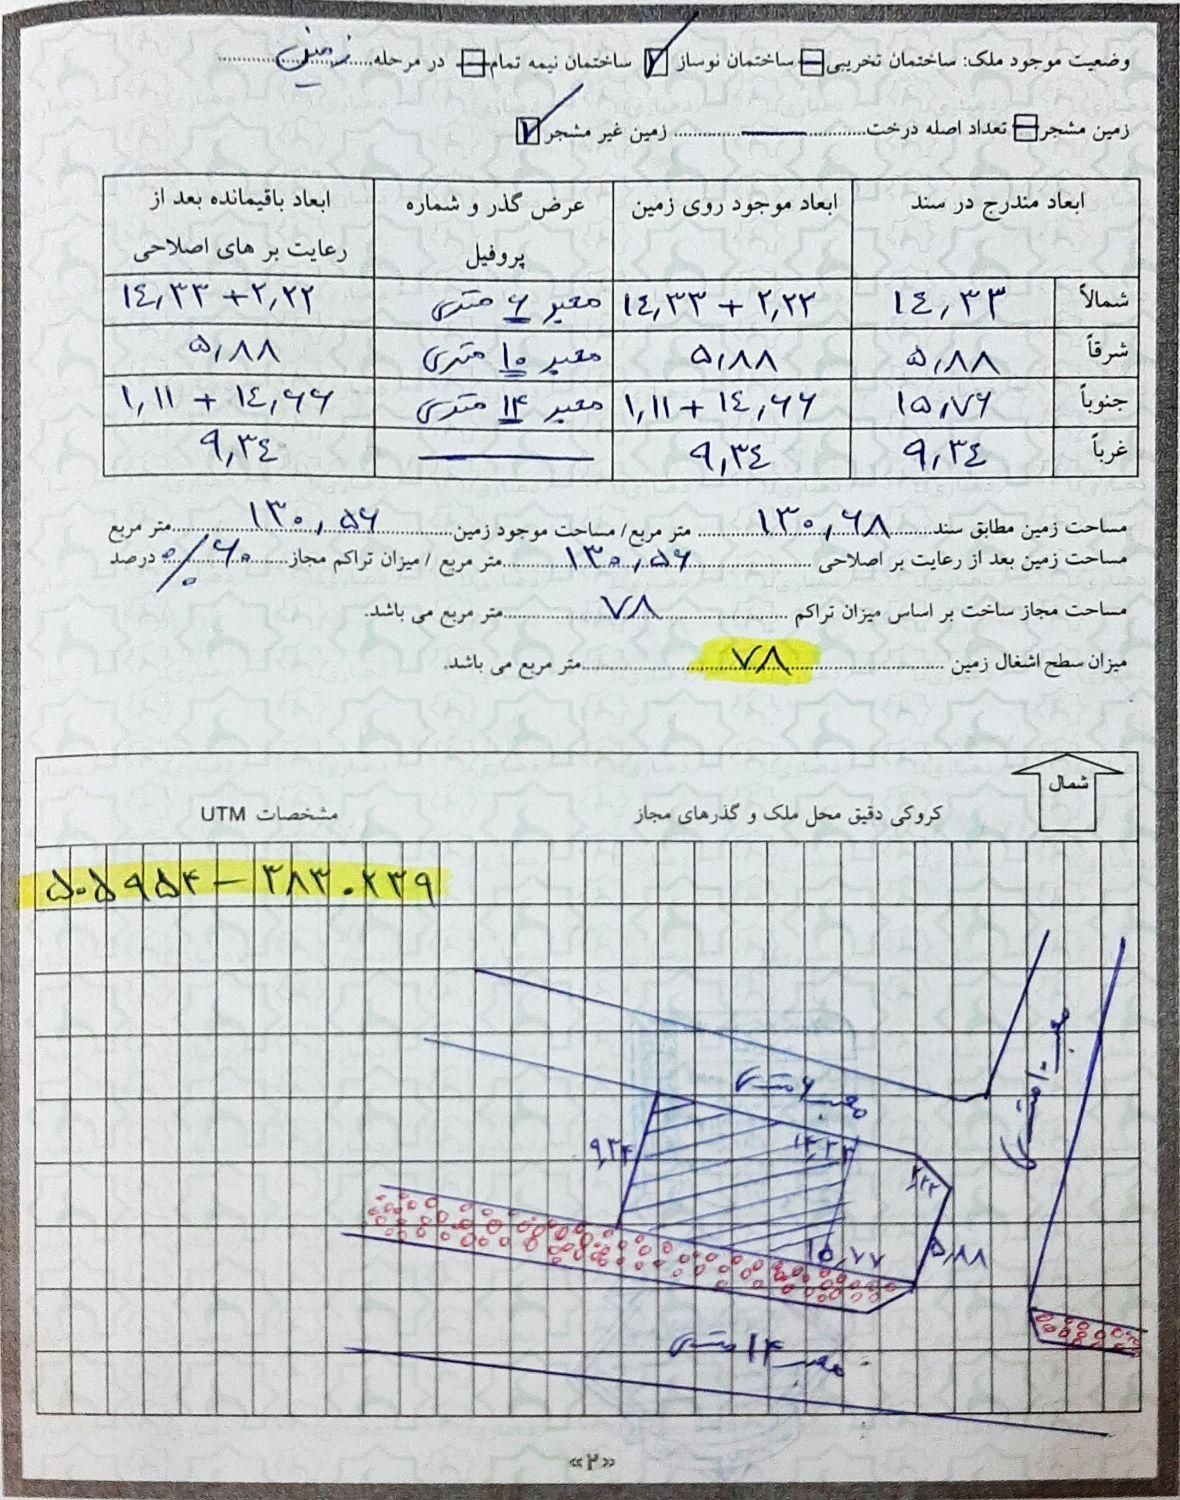 وضعیت موجود ملک: ساختمان تخریبی ساختمان نوساز ساختمان نیمه تمام در مرحله زمین
زمین مشجر تعداد اصله درخت زمین غیر مشجر
ابعاد مندرج در سند ابعاد موجود روی زمین عرض گذر و شماره پروفیل ابعاد باقیمانده بعد از رعایت بر های اصلاحی
شمالاً ۱۴,۳۳ ۱۴,۳۳ + ۲,۲۲ معبر ۶ متری ۱۴,۳۳ + ۲,۲۲
شرقاً ۵,۸۸ ۵,۸۸ معبر ۱۰ متری ۵,۸۸
جنوباً ۱۵,۷۶ ۱,۱۱ + ۱۴,۶۶ معبر ۱۴ متری ۱,۱۱ + ۱۴,۶۶
غرباً ۹,۳۴ ۹,۳۴ ۹,۳۴
مساحت زمین مطابق سند ۱۳۰,۶۸ متر مربع/ مساحت موجود زمین ۱۳۰,۵۶ متر مربع
مساحت زمین بعد از رعایت بر اصلاحی ۱۳۰,۵۶ متر مربع / میزان تراکم مجاز ۶۰٪ درصد
مساحت مجاز ساخت بر اساس میزان تراکم ۷۸ متر مربع می باشد.
میزان سطح اشغال زمین ۷۸ متر مربع می باشد.
شمال
کروکی دقیق محل ملک و گذرهای مجاز مشخصات UTM
۵۰۵۹۵۴ – ۳۸۳۰۲۳۹
معبر ۱۰ متری
معبر ۶ متری
۹,۳۴
۱۴,۳۳
۲,۲۲
۱۵,۷۷
۵,۸۸
معبر ۱۴ متری
«۲»